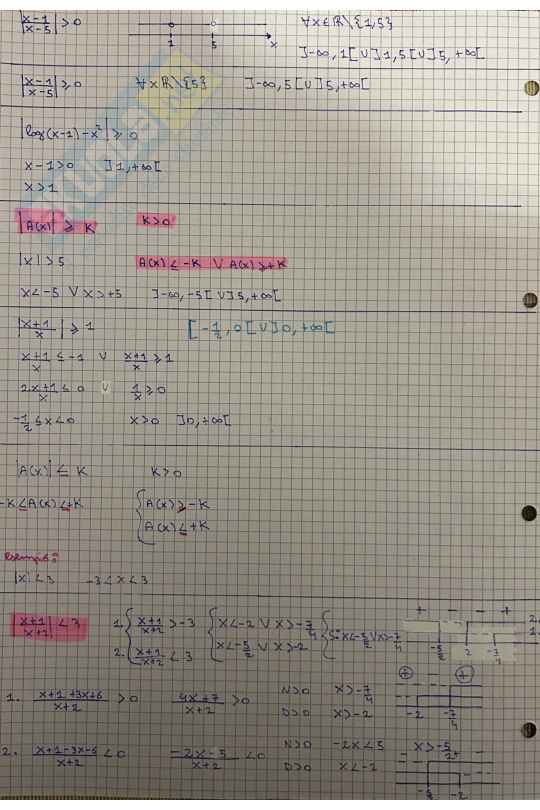 |x-1 / x-5| > 0   1   5   x   ∀x∈ℝ\{1,5}
]-∞,1[ ∪ ]1,5[ ∪ ]5,+∞[
|x-1 / x-5| ≥ 0   ∀x ℝ\{5}   ]-∞,5[ ∪ ]5,+∞[
|log(x-1) - x²| ≥ 0
x-1>0   ]1,+∞[
x>1
|A(x)| ≥ K   K>0
|x| > 5   A(x) ≤ -K ∨ A(x) ≥ +K
x<-5 ∨ x>+5   ]-∞,-5[ ∪ ]5,+∞[
|x+1 / x| ≥ 1   [-1/2,0[ ∪ ]0,+∞[
x+1/x ≤ -1 ∨ x+1/x ≥ 1
2x+1/x ≤ 0 ∨ 1/x ≥ 0
-1/2 ≤ x < 0   x>0   ]0,+∞[
|A(x)| ≤ K   K>0
-K ≤ A(x) ≤ +K   { A(x) ≥ -K
A(x) ≤ +K
esempio:
|x| < 3   -3 < x < 3
|x+1 / x+2| < 3   1. { x+1/x+2 > -3   { x<-2 ∨ x>-7/4   { S: x<-5/2 ∨ x>-7/4   + - - +
2. x+1/x+2 < 3   x<-5/2 ∨ x>-2   -5/2   2
1. x+1+3x+6 / x+2 > 0   4x+7 / x+2 > 0   N>0   x>-7/4   + +
D>0   x>-2   -2   -7/4
2. x+1-3x-6 / x+2 < 0   -2x-5 / x+2 < 0   N>0   -2x<5   x>-5/2
D>0   -2